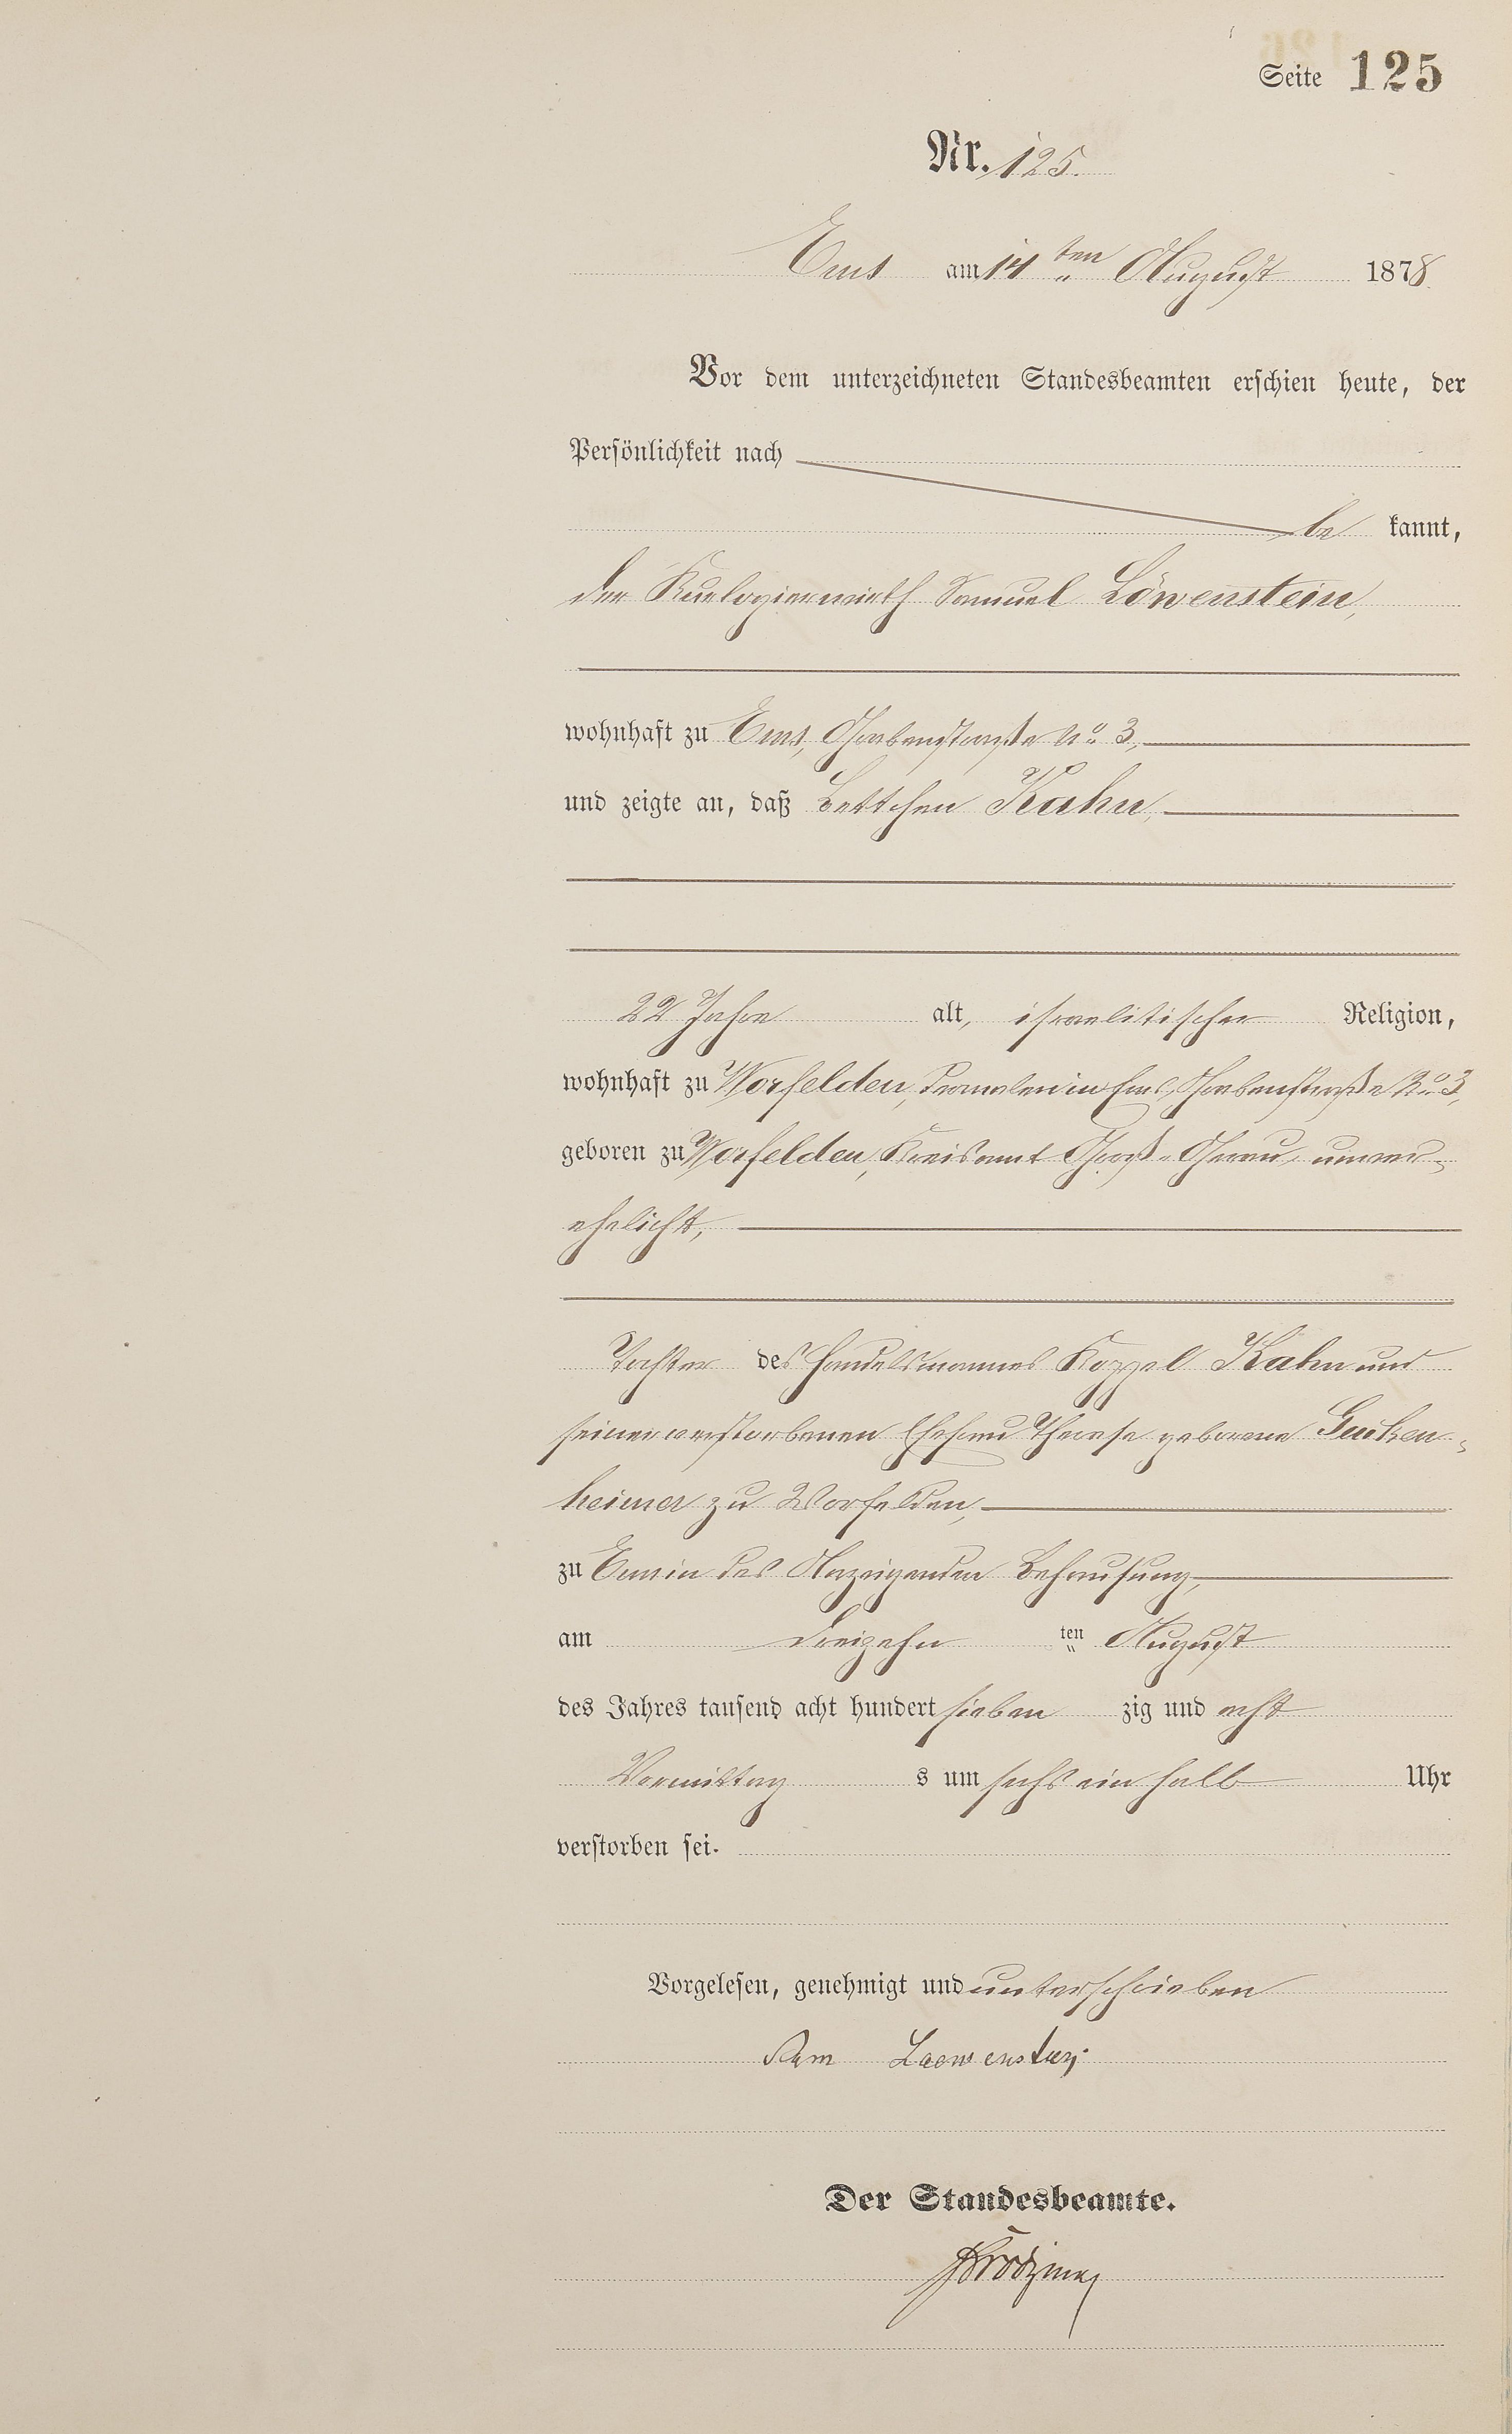 Seite 125
Nr. 125.
Ems am 14ten August 1878.
Vor dem unterzeichneten Standesbeamten erschien heute, der
Persönlichkeit nach
be kannt,
der Kurlogierwirth Samuel Löwenstein,
wohnhaft zu Ems, Grabenstraße No. 3,
und zeigte an, daß Bettchen Kahn,
22 Jahre alt, israelitischer Religion,
wohnhaft zu Worfelden, in Ems, Grabenstraße No. 3,
geboren zu Worfelden, Kreisamt Groß-Gerau, unver-
ehelicht,
Tochter des Handelsmannes Koppel Kahn und
seiner verstorbenen Ehefrau Therese geborene Gucken-
heimer zu Worfelden,
zu Ems in des Anzeigenden Behausung,
am dreizehn ten August
des Jahres tausend acht hundert sieben zig und acht
Vormittag s um sechs ein halb Uhr
verstorben sei.
Vorgelesen, genehmigt und unterschrieben
Sam Loewenstein
Der Standesbeamte.